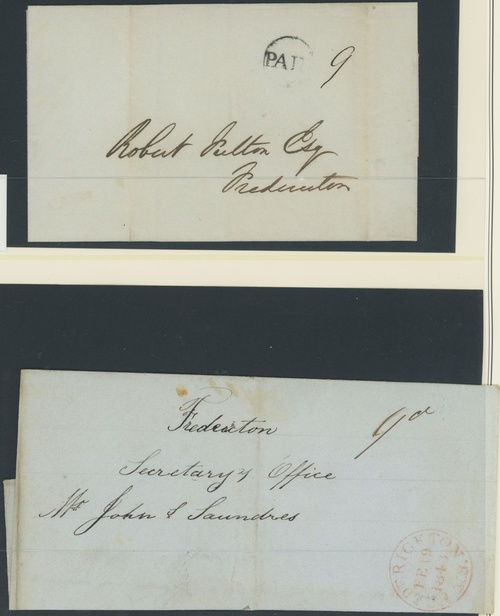 PAID
9
Robert Fulton Esq
Fredericton
Fredericton
9d
Secretary's Office
Mr John S Saundres
FREDERICTON
FE 19
184